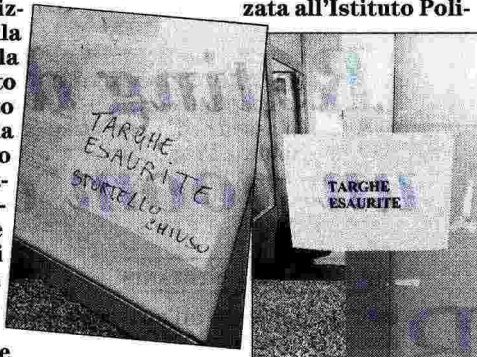 iz-
lla
la
to
to
a
o
-
-
e
i
e
zata all'Istituto Poli-
TARGHE
ESAURITE
SPORTELLO
CHIUSO
TARGHE
ESAURITE